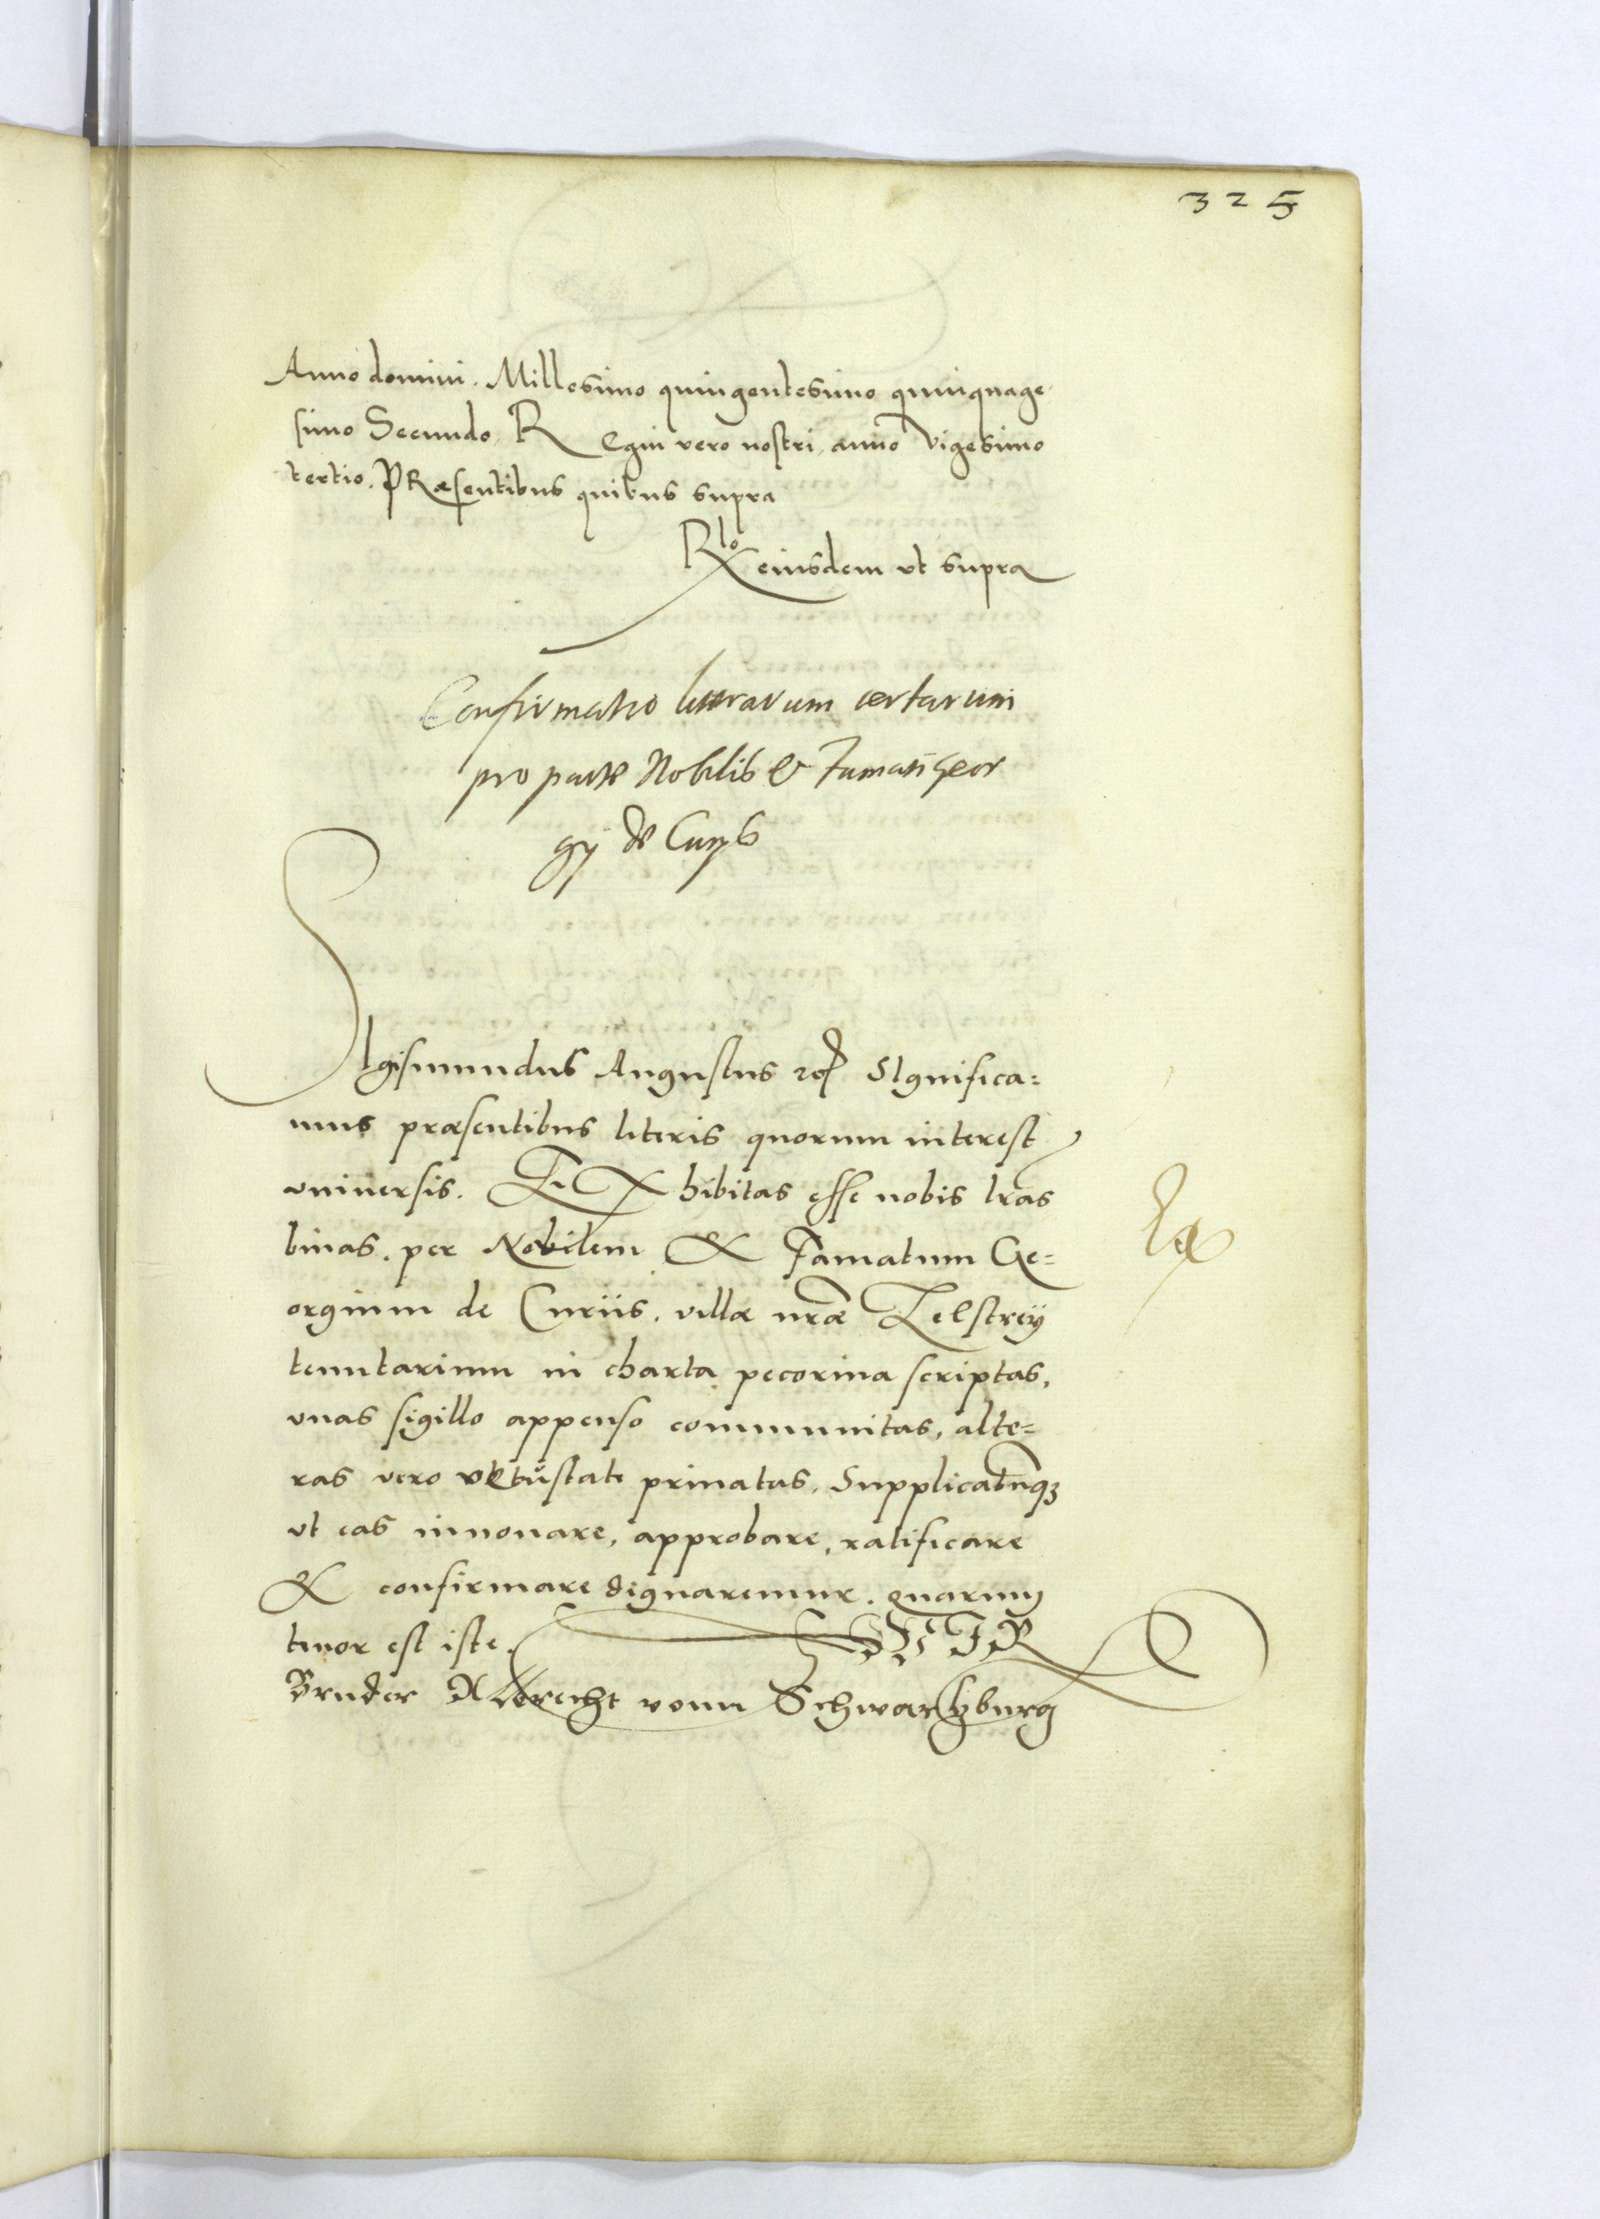 325
Anno domini. Millesimo quingentesimo quinquage
simo Secundo. REgni vero nostri, anno Vigesimo
tertio. PRæsentibus quibus supra
Rlo eiusdem ut supra
Confirmatio literarum certarum
pro parte Nobilis & Famati Geor
gij de Curijs
SIgismundus Augustus rex SIgnifica=
mus præsentibus literis quorum interest
universis. EXhibitas esse nobis lras
binas. per Nobilem & Famatum Ge=
orgium de Curiis. villæ nræ
tenutarium in charta pecorina scriptas,
unas sigillo appenso communitas, alte=
ras vero vetustate privatas. Supplicatumq3
ut eas innovare, approbare, ratificare
& confirmare dignaremur. quarum
tenor est iste. WIR
Bruder Albrecht vonn Schwartzburg